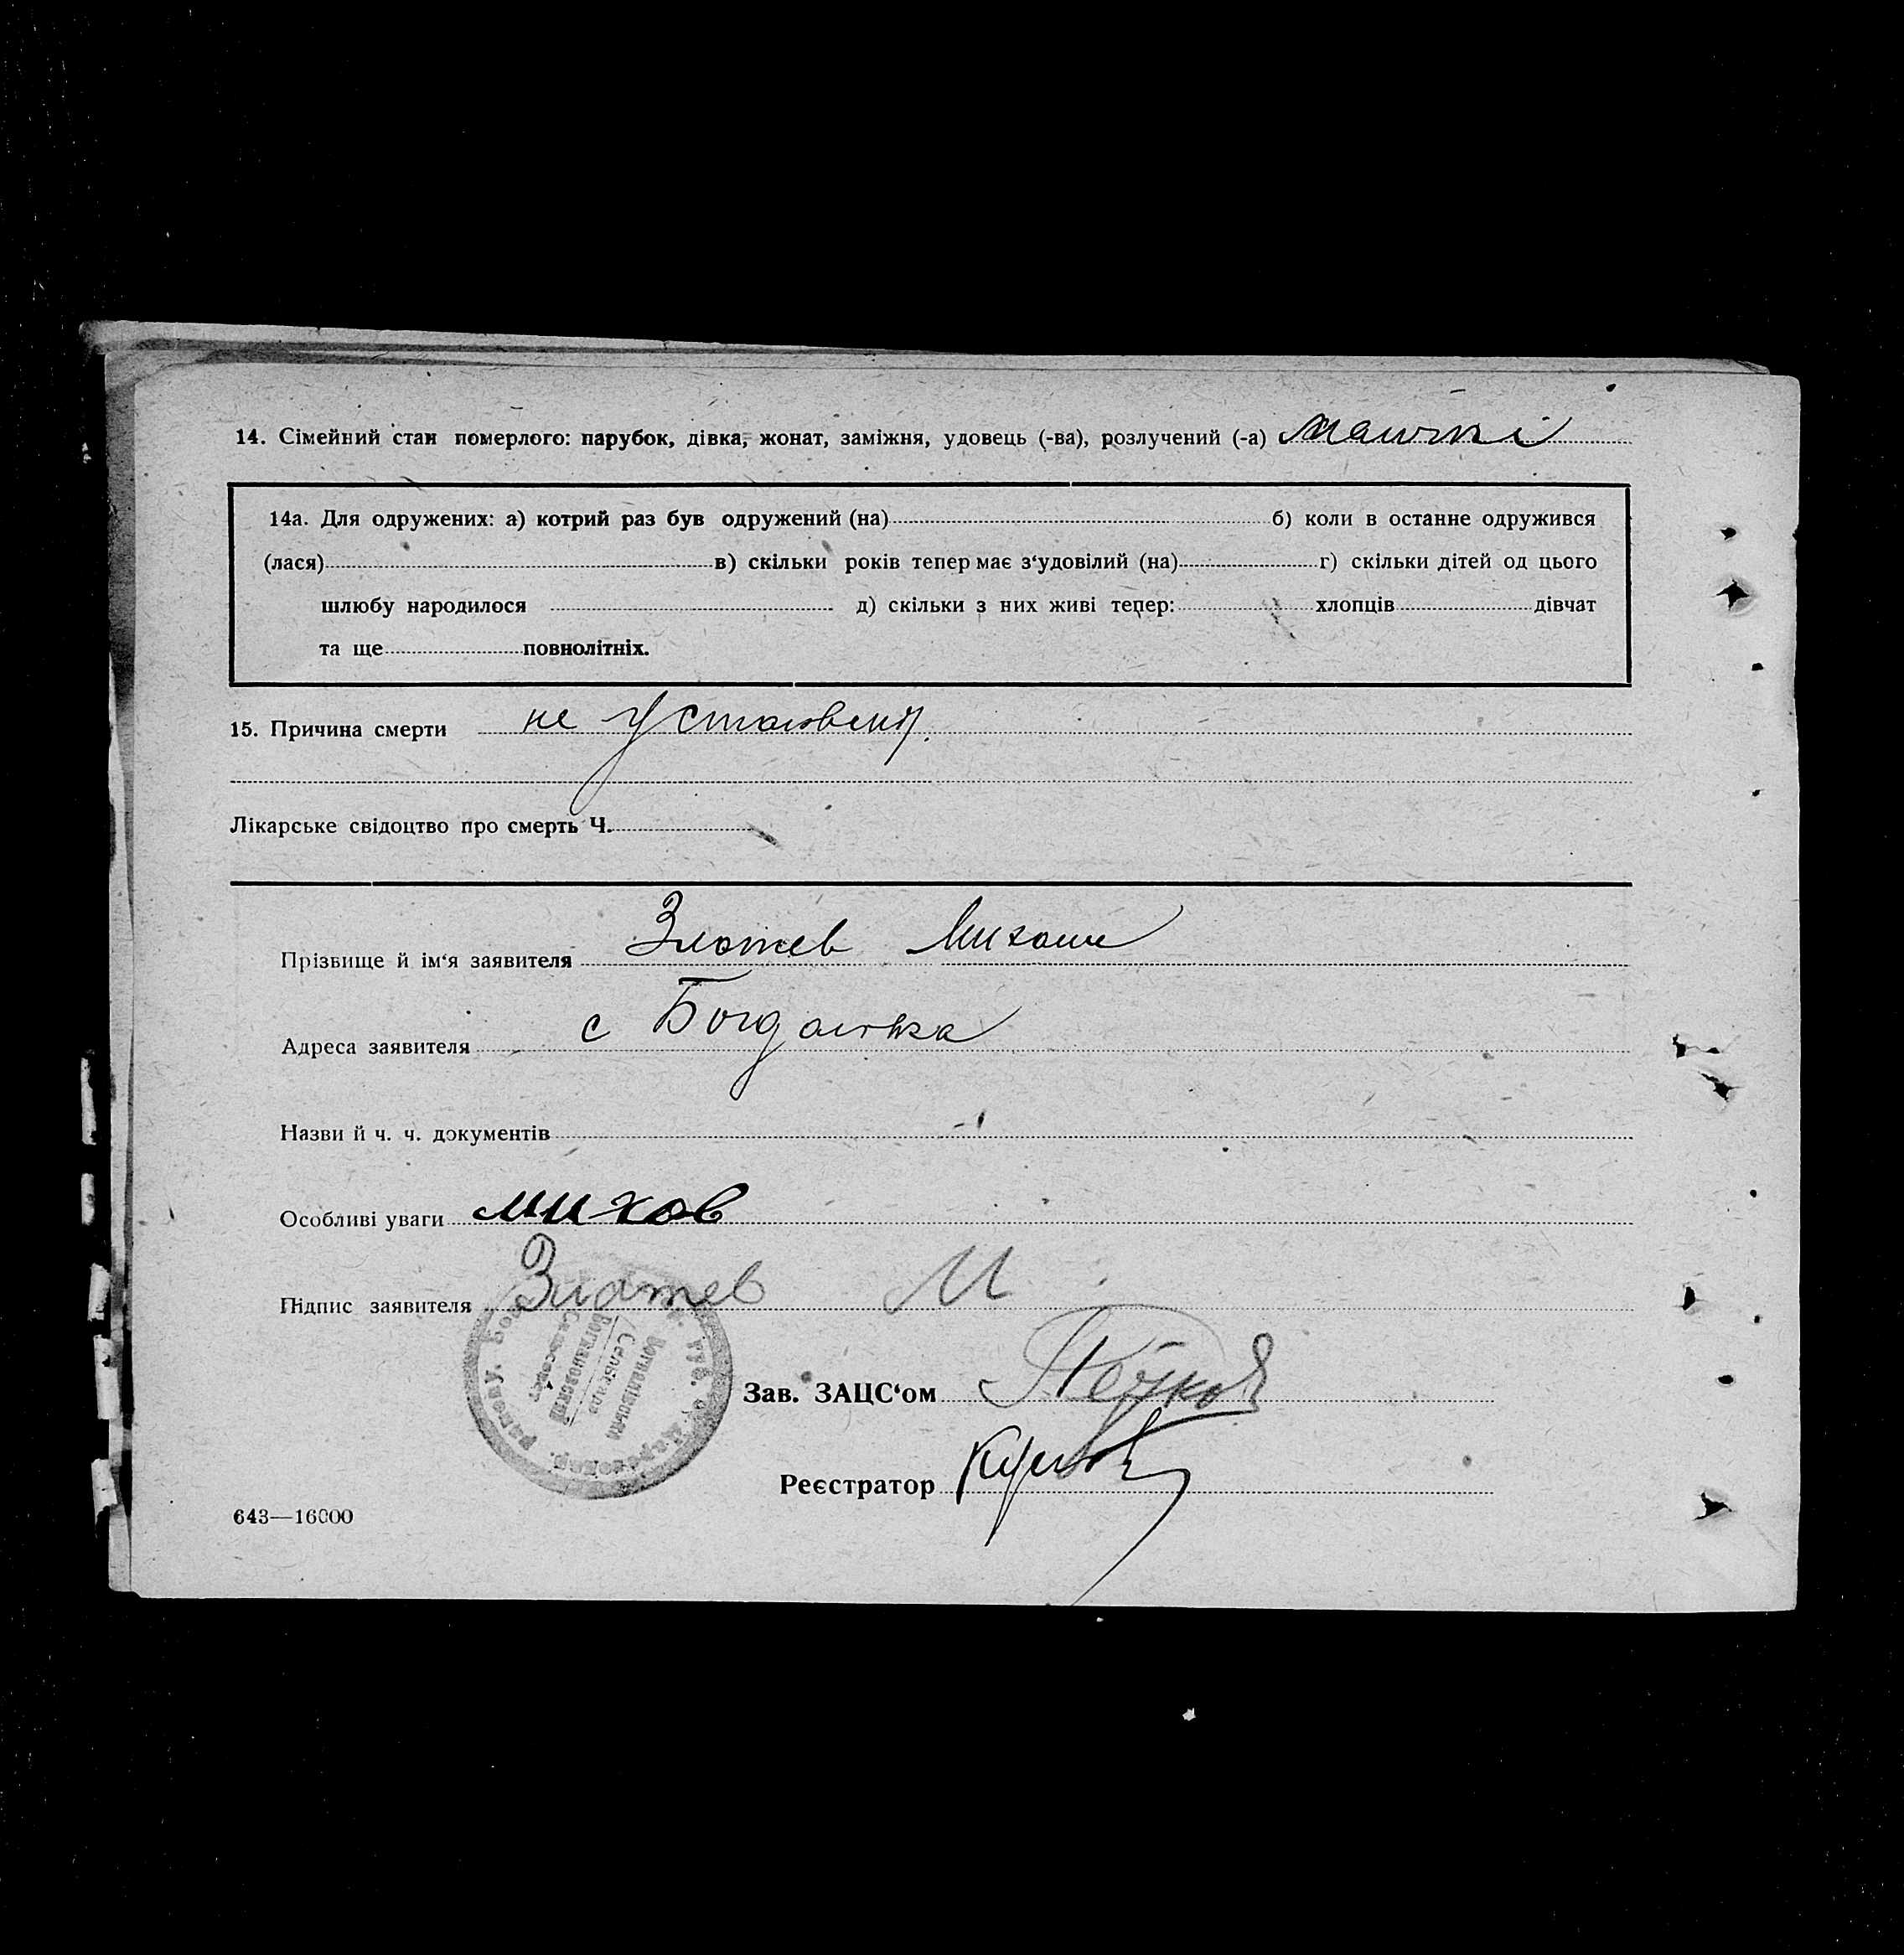 14. Сімейний стан померлого: парубок, дівка, жонат, заміжня, удовець (-ва), розлучений (-а)
14а. Для одружених: а) котрий раз був одружений (на) б) коли в останне одружився
(лася) в) скільки років тепер має з‘удовілий (на) г) скільки дітей од цього
шлюбу народилося д) скільки з них живі тепер: хлопців дівчат
та ще повнолітніх.
15. Причина смерти не установлен
Лікарське свідоцтво про смерть Ч.
Прізвище й ім‘я заявителя Златев Михаил
Адреса заявителя с Богдановка
Назви й ч. ч. документів
Особливі уваги михов
Підпис заявителя Златев М
Богданівська
Сельрада
Богдановский
Сельсовет
Зав. ЗАЦС‘ом
Реєстратор
643—16000